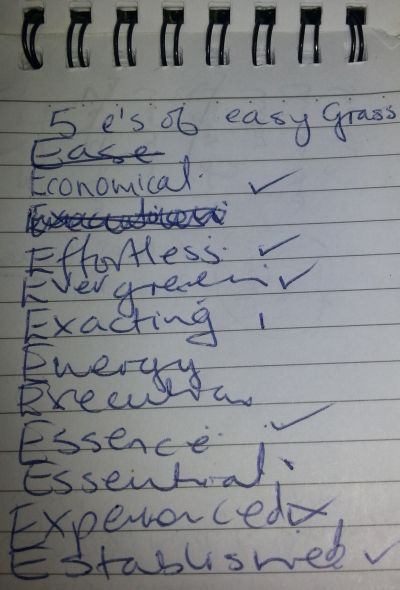 5 e's of easy Grass
Ease
Economical
Effortless
Evergreen
Exacting
Energy
Essence
Essential
Experienced
Established